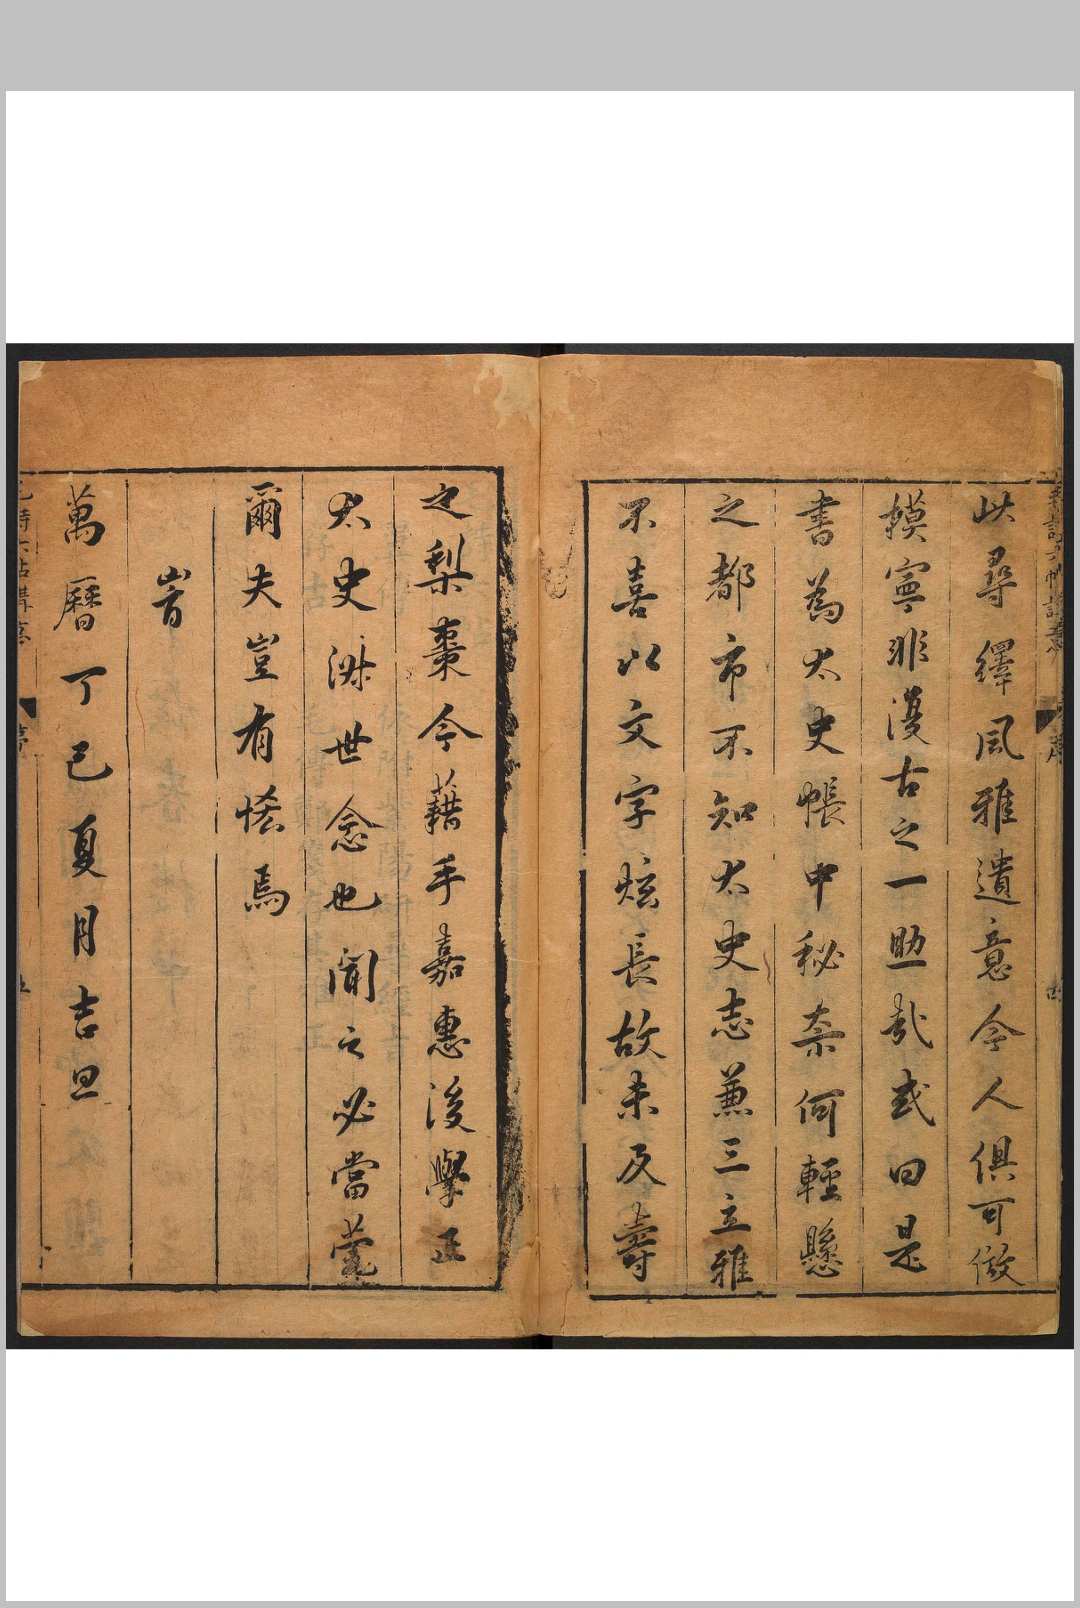 此尋繹風雅遺意今人俱可倣
摸寧非復古之一助哉或曰是
書為太史帳中秘奈何輕懸
之都市不知太史志兼三立雅
不喜以文字炫長故未及壽
之梨棗今藉手嘉惠後學正
太史淑世念也聞之必當莞
爾夫豈有恡焉
旹
萬曆丁巳夏月吉旦